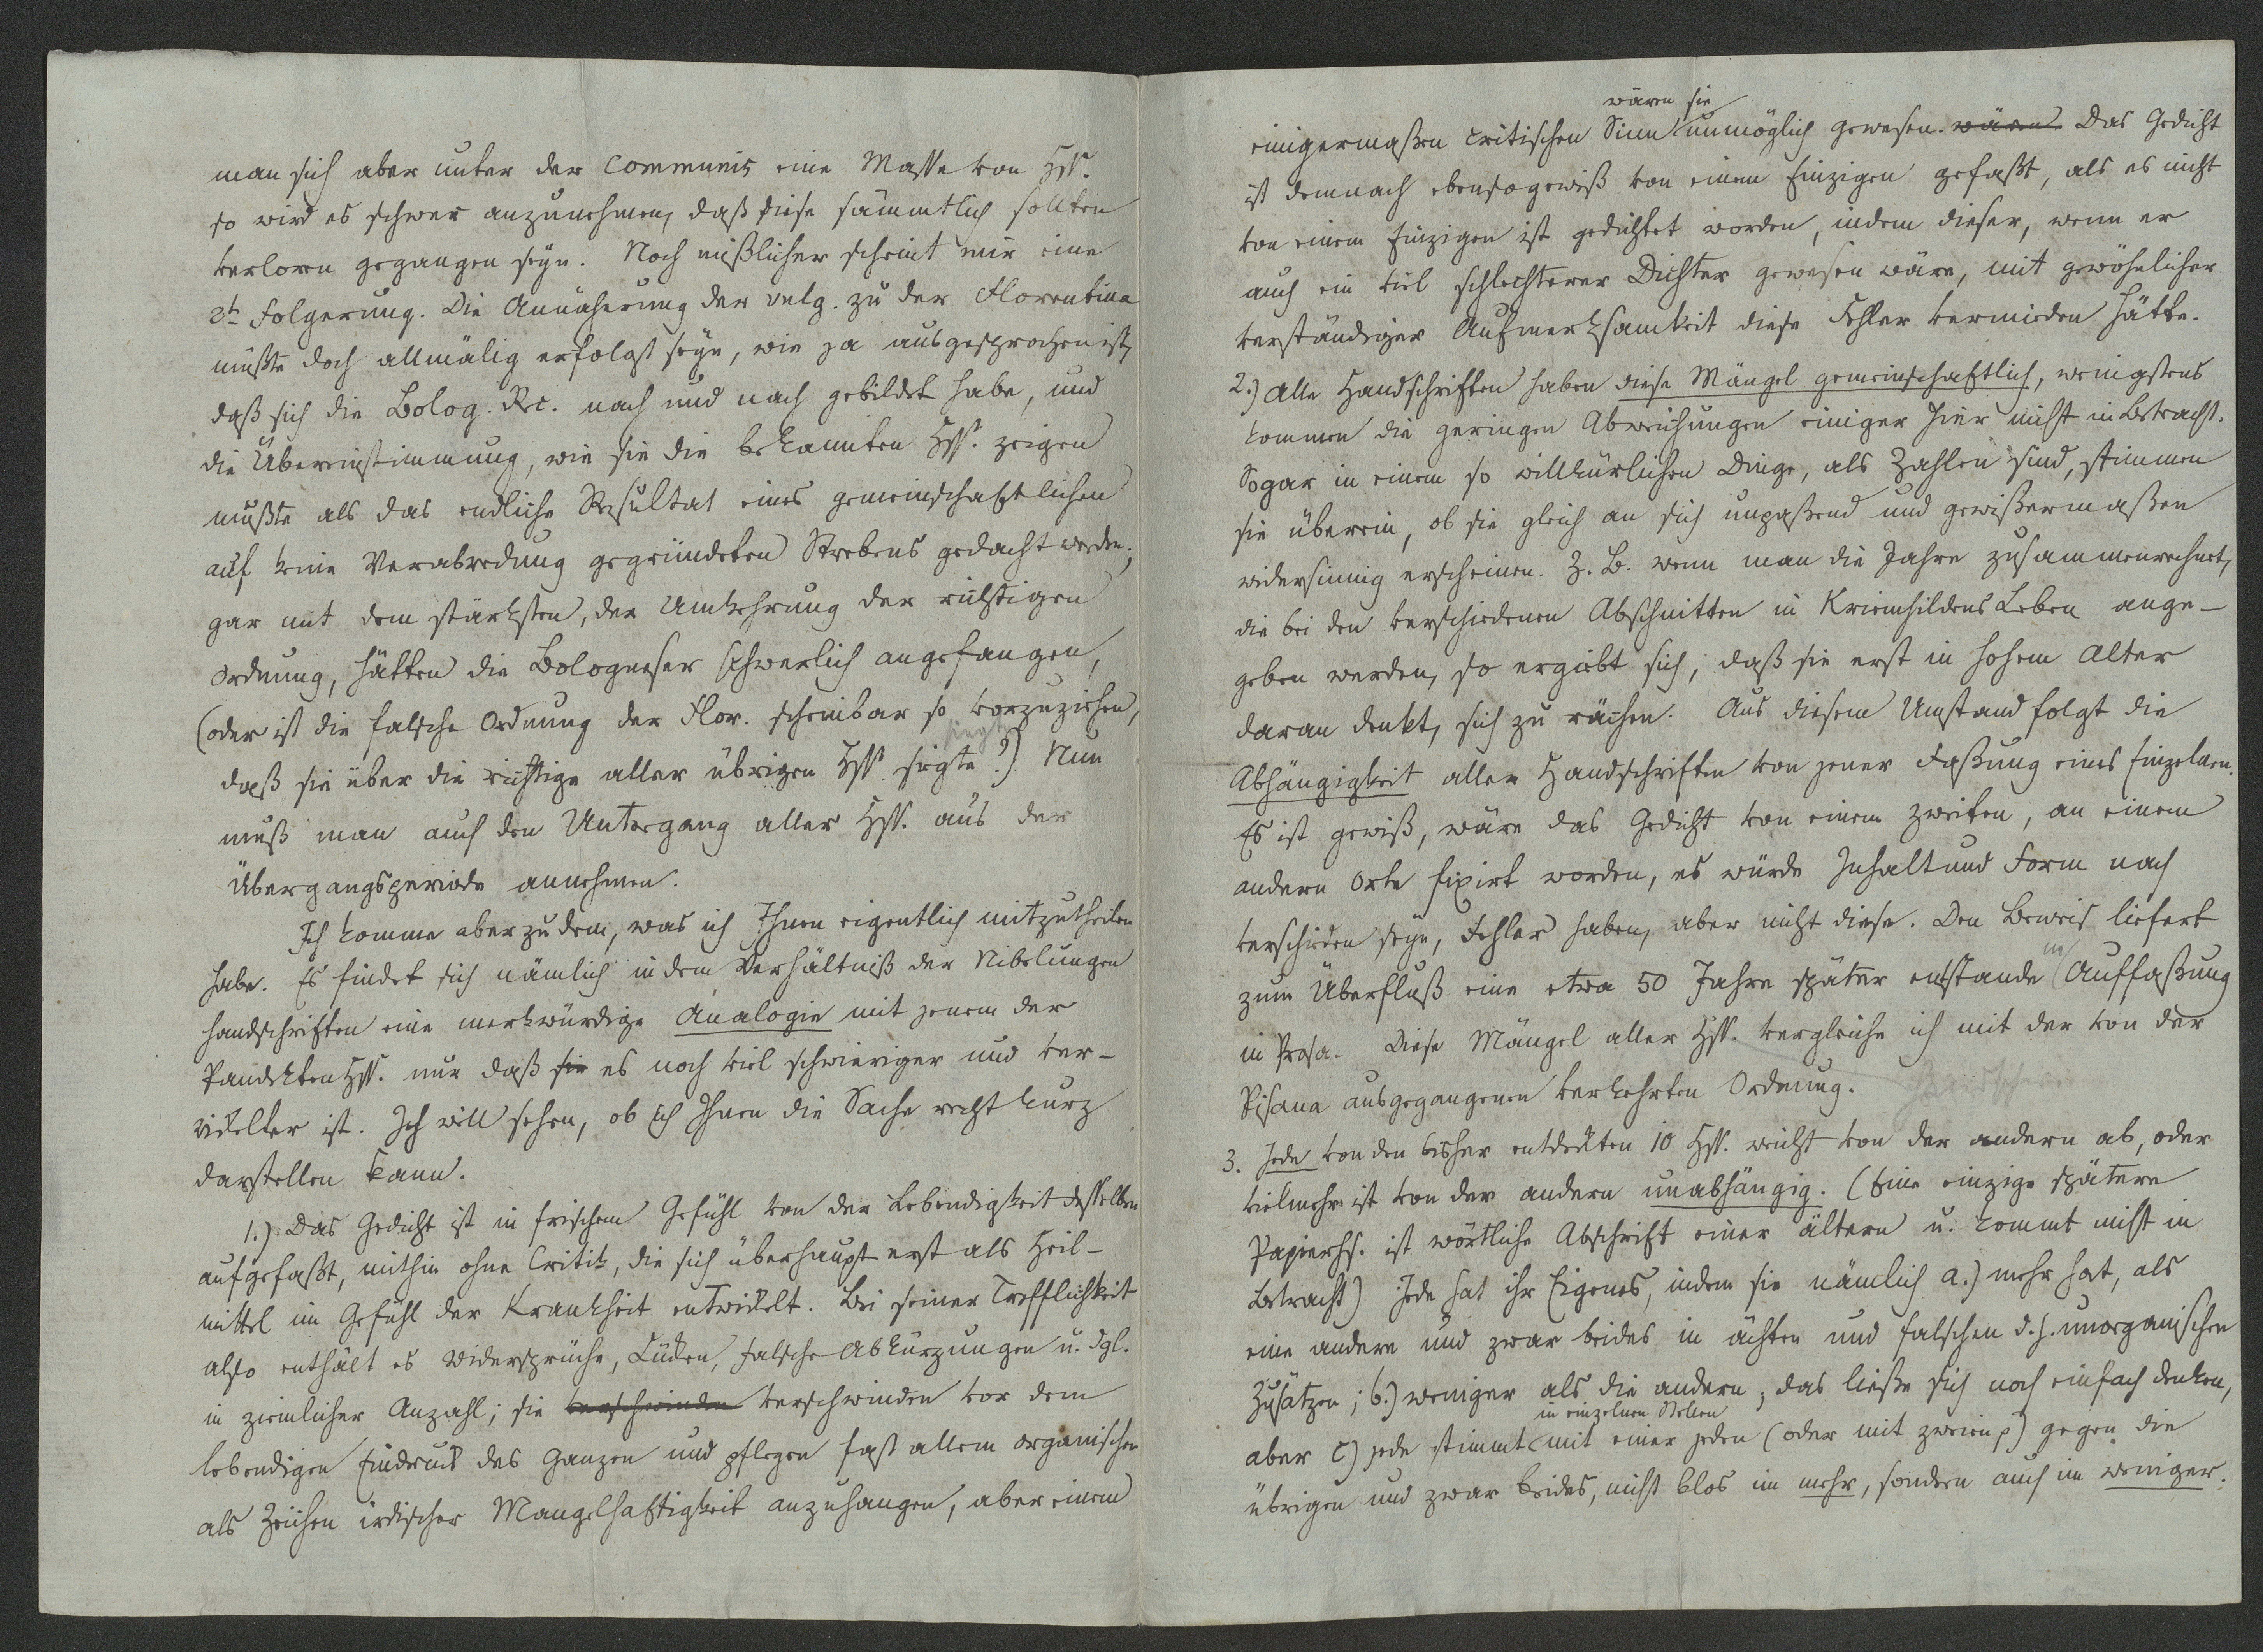 man sich aber unter der communis eine Masse von Hss.
so wird es schwer anzunehmen, daß diese sämmtlich sollten
verloren gegangen seyn. Noch mißlicher scheint mir eine
2te Folgerung. Die Annäherung der vulg. zu der Florentina
müßte doch allmälig erfolgt seyn, wie ja ausgesprochen ist,
daß sich die Bolog. Rec. nach und nach gebildet habe, und
die Übereinstimmung, wie sie die bekannten Hss. zeigen
müßte als das endliche Resultat eines gemeinschaftlichen
auf keine Verabredung gegründeten Strebens gedacht werden;
gar mit dem stärksten, der Umkehrung der richtigen
Ordnung, hätten die Bologneser schwerlich angefangen,
(oder ist die falsche Ordnung der Flor. scheinbar so vorzuziehen,
daß sie über die richtige aller übrigen Hss. siegte?) Nun
muß man auch den Untergang aller Hss. aus der
Übergangsperiode annehmen.
Ich komme aber zu dem, was ich Ihnen eigentlich mitzutheilen
habe. Es findet sich nämlich in dem Verhältniß der Nibelungen
handschriften eine merkwürdige Analogie mit jenem der
Pandekten Hss. nur daß sie es noch viel schwieriger und ver-
wickelter ist. Ich will sehen, ob ich Ihnen die Sache recht kurz
darstellen kann.
1.) Das Gedicht ist in frischem Gefühl von der Lebendigkeit desselben
aufgefaßt, mithin ohne Critik, die sich überhaupt erst als Heil-
mittel im Gefühl der Krankheit entwickelt. Bei seiner Trefflichkeit
also enthält es Widersprüche, Lücken, falsche Abkürzungen u. dgl.
in ziemlicher Anzahl; sie verschwinden verschwinden vor dem
lebendigen Eindruck des Ganzen und pflegen fast allem organischen
als Zeichen irdischer Mangelhaftigkeit anzuhangen, aber einem
wären sie
einigermaßen critischen Sinn unmöglich gewesen. wären. Das Gedicht
ist demnach ebensogewiß von einem Einzigen gefaßt, als es nicht
von einem Einzigen ist gedichtet worden, indem dieser, wenn er
auch ein viel schlechterer Dichter gewesen wäre, mit gewöhnlicher
verständiger Aufmerksamkeit diese Fehler vermieden hätte.
2.) Alle Handschriften haben diese Mängel gemeinschaftlich, wenigstens
kommen die geringen Abweichungen einiger hier nicht in Betracht.
Sogar in einem so willkürlichen Dinge, als Zahlen sind, stimmen
sie überein, ob sie gleich an sich unpaßend und gewißermaßen
widersinnig erscheinen. Z. B. wenn man die Jahre zusammenrechnet,
die bei den verschiedenen Abschnitten in Kriemhildens Leben ange-
geben werden, so ergiebt sich, daß sie erst in hohem Alter
daran denkt, sich zu rächen. Aus diesem Umstand folgt die
Abhängigkeit aller Handschriften von jener Faßung eines Einzelnen.
Es ist gewiß, wäre das Gedicht von einem zweiten, an einem
andern Orte fixirt worden, es würde Inhalt und Form nach
verschieden seyn, Fehler haben, aber nicht diese. Den Beweis liefert
zum Überfluß eine etwa 50 Jahre später entstande Auffaßung
in Prosa. Diese Mängel aller Hss. vergleiche ich mit der von der
Pisana ausgegangenen verkehrten Ordnung.
3. Jede von den bisher entdeckten 10 Hss. weicht von der andern ab, oder
vielmehr ist von der andern unabhängig. (Eine einzige spätere
Papierhs. ist wörtliche Abschrift einer ältern u. kommt nicht in
Betracht) Jede hat ihr Eigenes, indem sie nämlich a.) mehr hat, als
eine andere und zwar beides in ächten und falschen d.h. unorganischen
Zusätzen; b.) weniger als die andern, das ließe sich noch einfach denken,
in einzelnen Stellen
aber c) jede stimmt mit einer jeden (oder mit zweien) gegen die
übrigen und zwar beides, nicht blos im mehr, sondern auch im weniger.